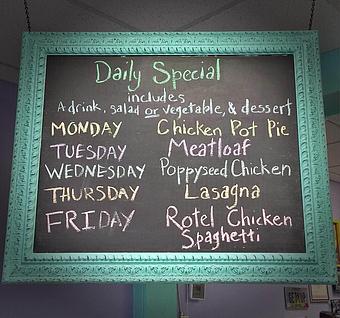 Daily Special
includes
A drink, salad or vegetable, & dessert
MONDAY Chicken Pot Pie
TUESDAY Meatloaf
WEDNESDAY Poppyseed Chicken
THURSDAY Lasagna
FRIDAY Rotel Chicken
Spaghetti